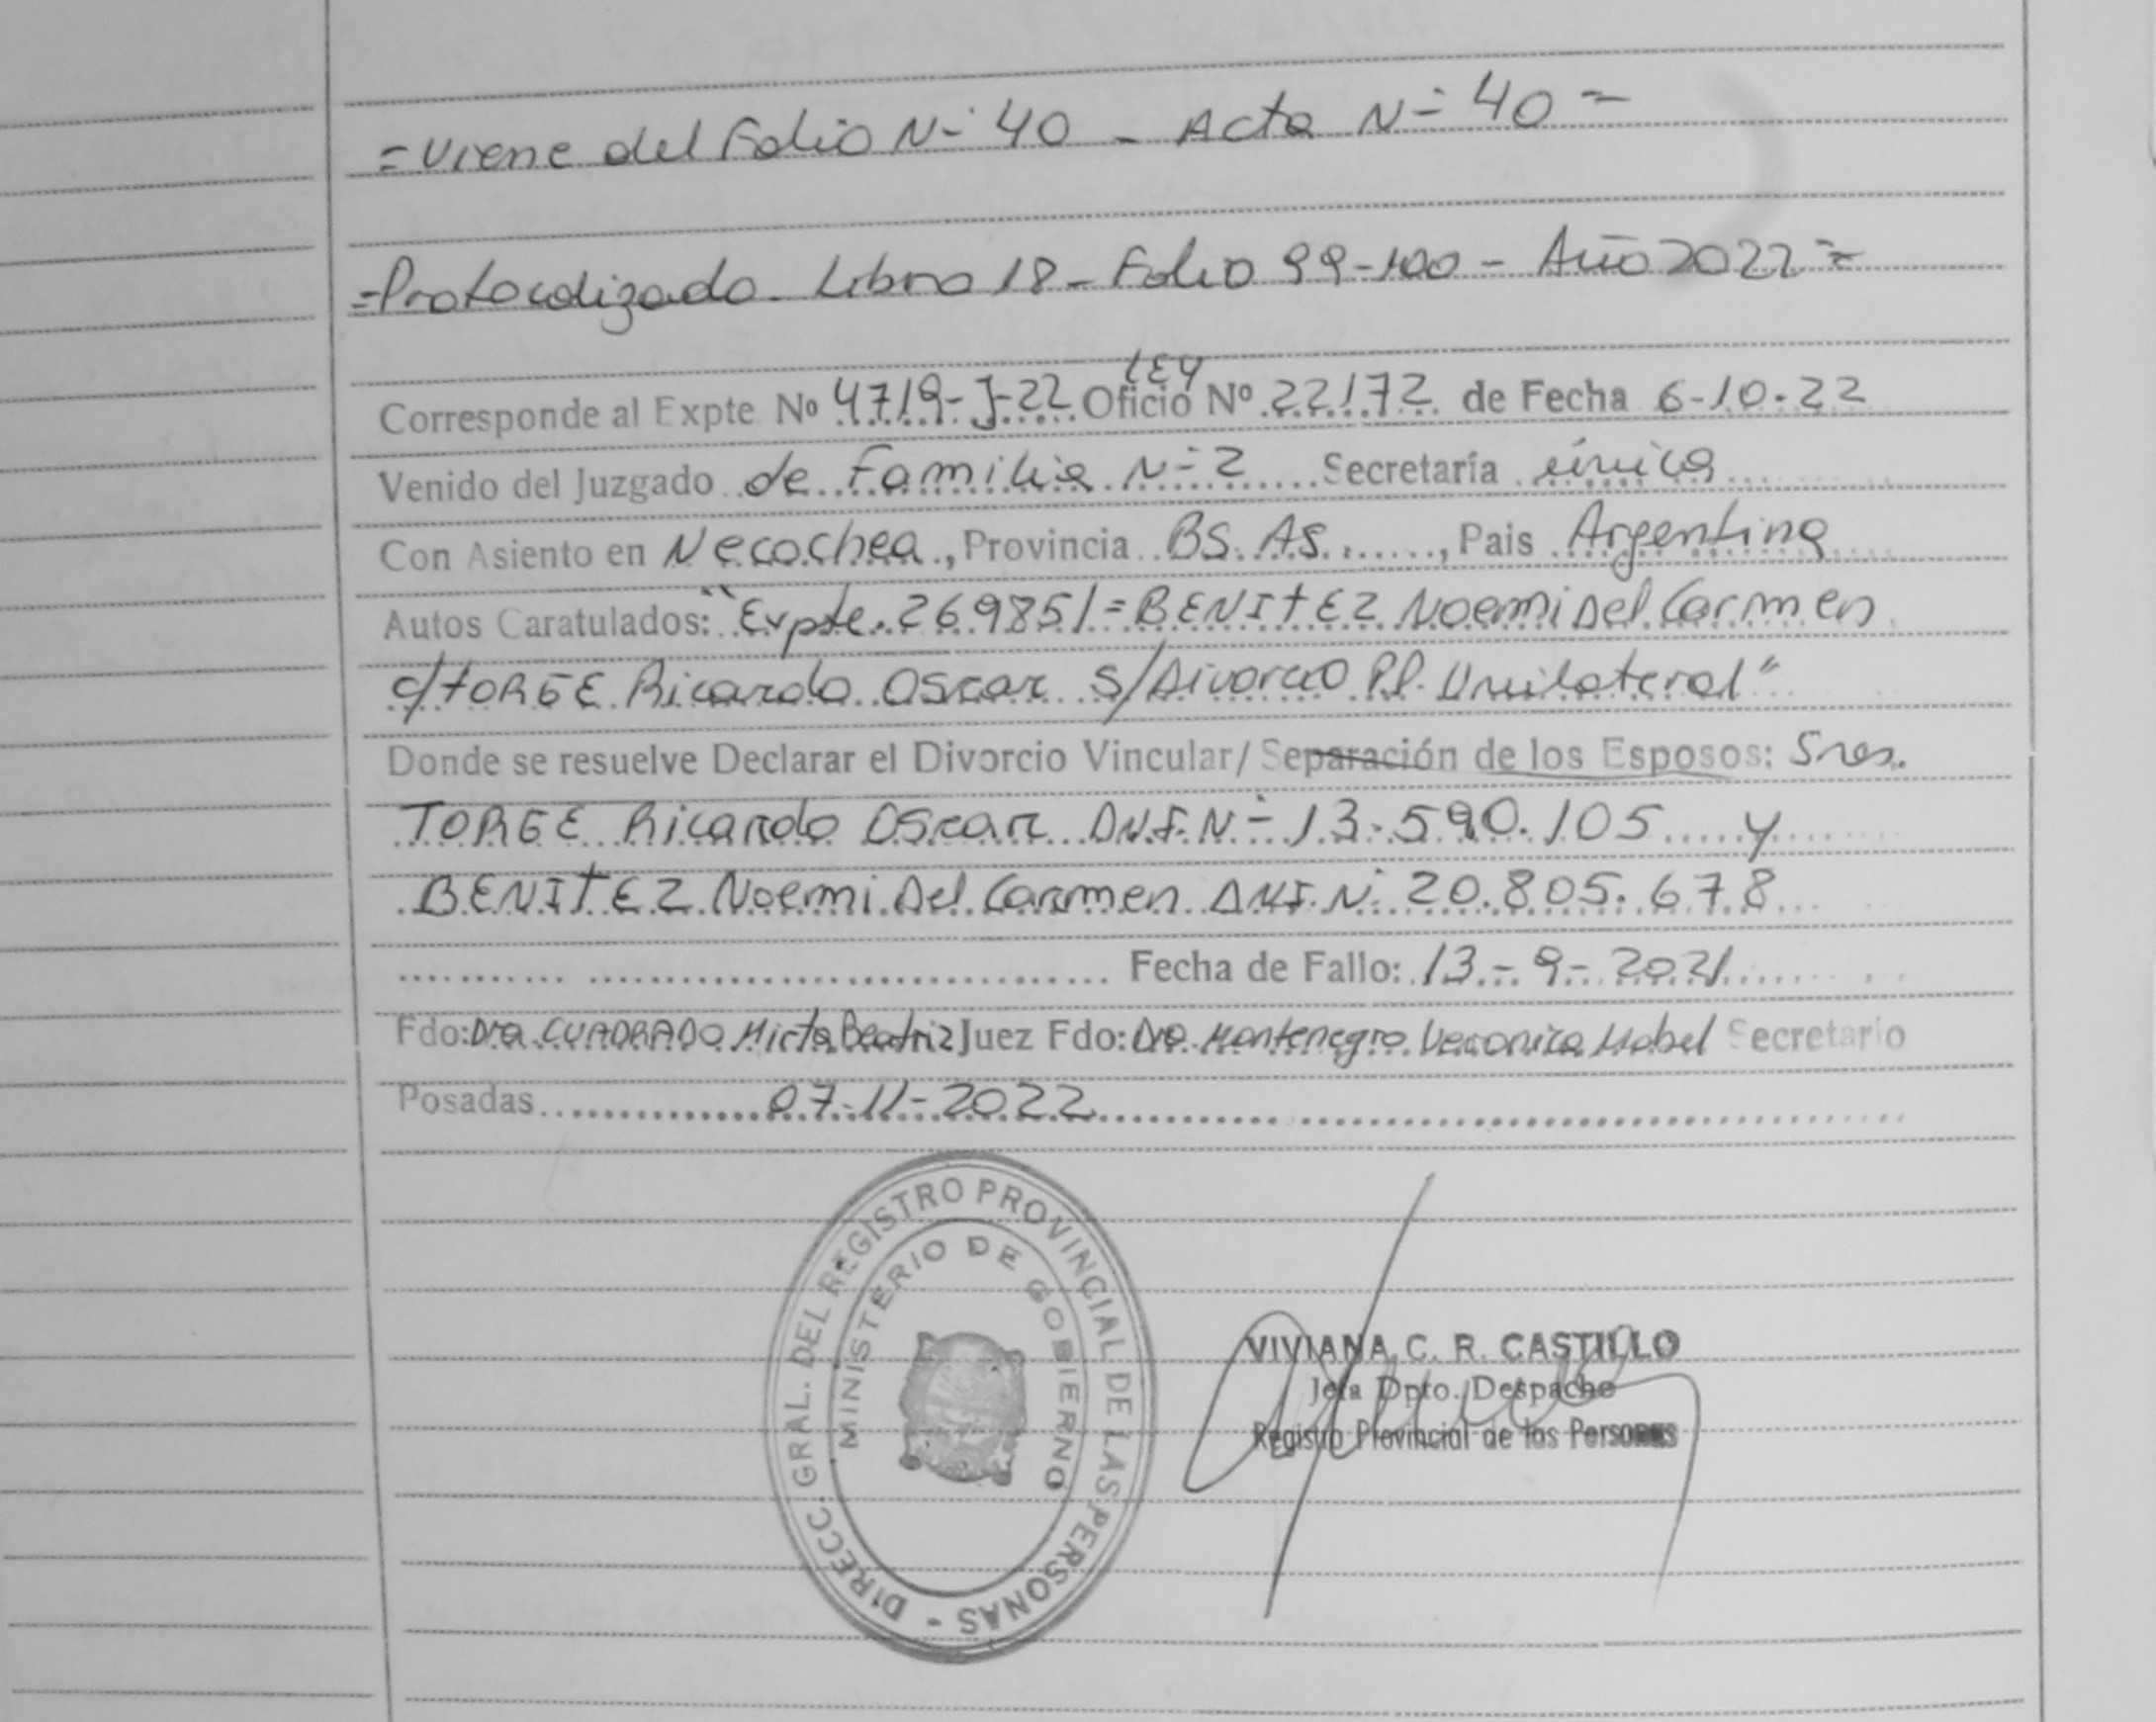 =Viene del Folio N- 40 - Acta N- 40=
=Protocolizado - Libro 18 - Folio 99-100 - Año 2022=
LEY
Corresponde al Expte Nº 4719-J-22 Oficio Nº 22172 de Fecha 6-10-22
Venido del Juzgado de Familia N-2 Secretaría única
Con Asiento en Necochea, Provincia BS. AS., Pais Argentina
Autos Caratulados: "Expte. 26985/=BENITEZ Noemi Del Carmen
c/TORGE Ricardo Oscar S/Divorcio P.P. Unilateral"
Donde se resuelve Declarar el Divorcio Vincular/ Separación de los Esposos: Sres.
TORGE Ricardo Oscar D.N.I. N- 13.590.105 y
BENITEZ Noemi Del Carmen DNI. N. 20.805.678
Fecha de Fallo: 13-9-2021
Fdo: Dra. CUADRADO Mirta Beatriz Juez Fdo: Dra. Montenegro Veronica Mabel Secretario
Posadas 07-11-2022
DIRECC. GRAL. DEL REGISTRO PROVINCIAL DE LAS PERSONAS -
MINISTERIO DE GOBIERNO
VIVIANA C. R. CASTILLO
Jefa Dpto. Despacho
Registro Provincial de las Personas